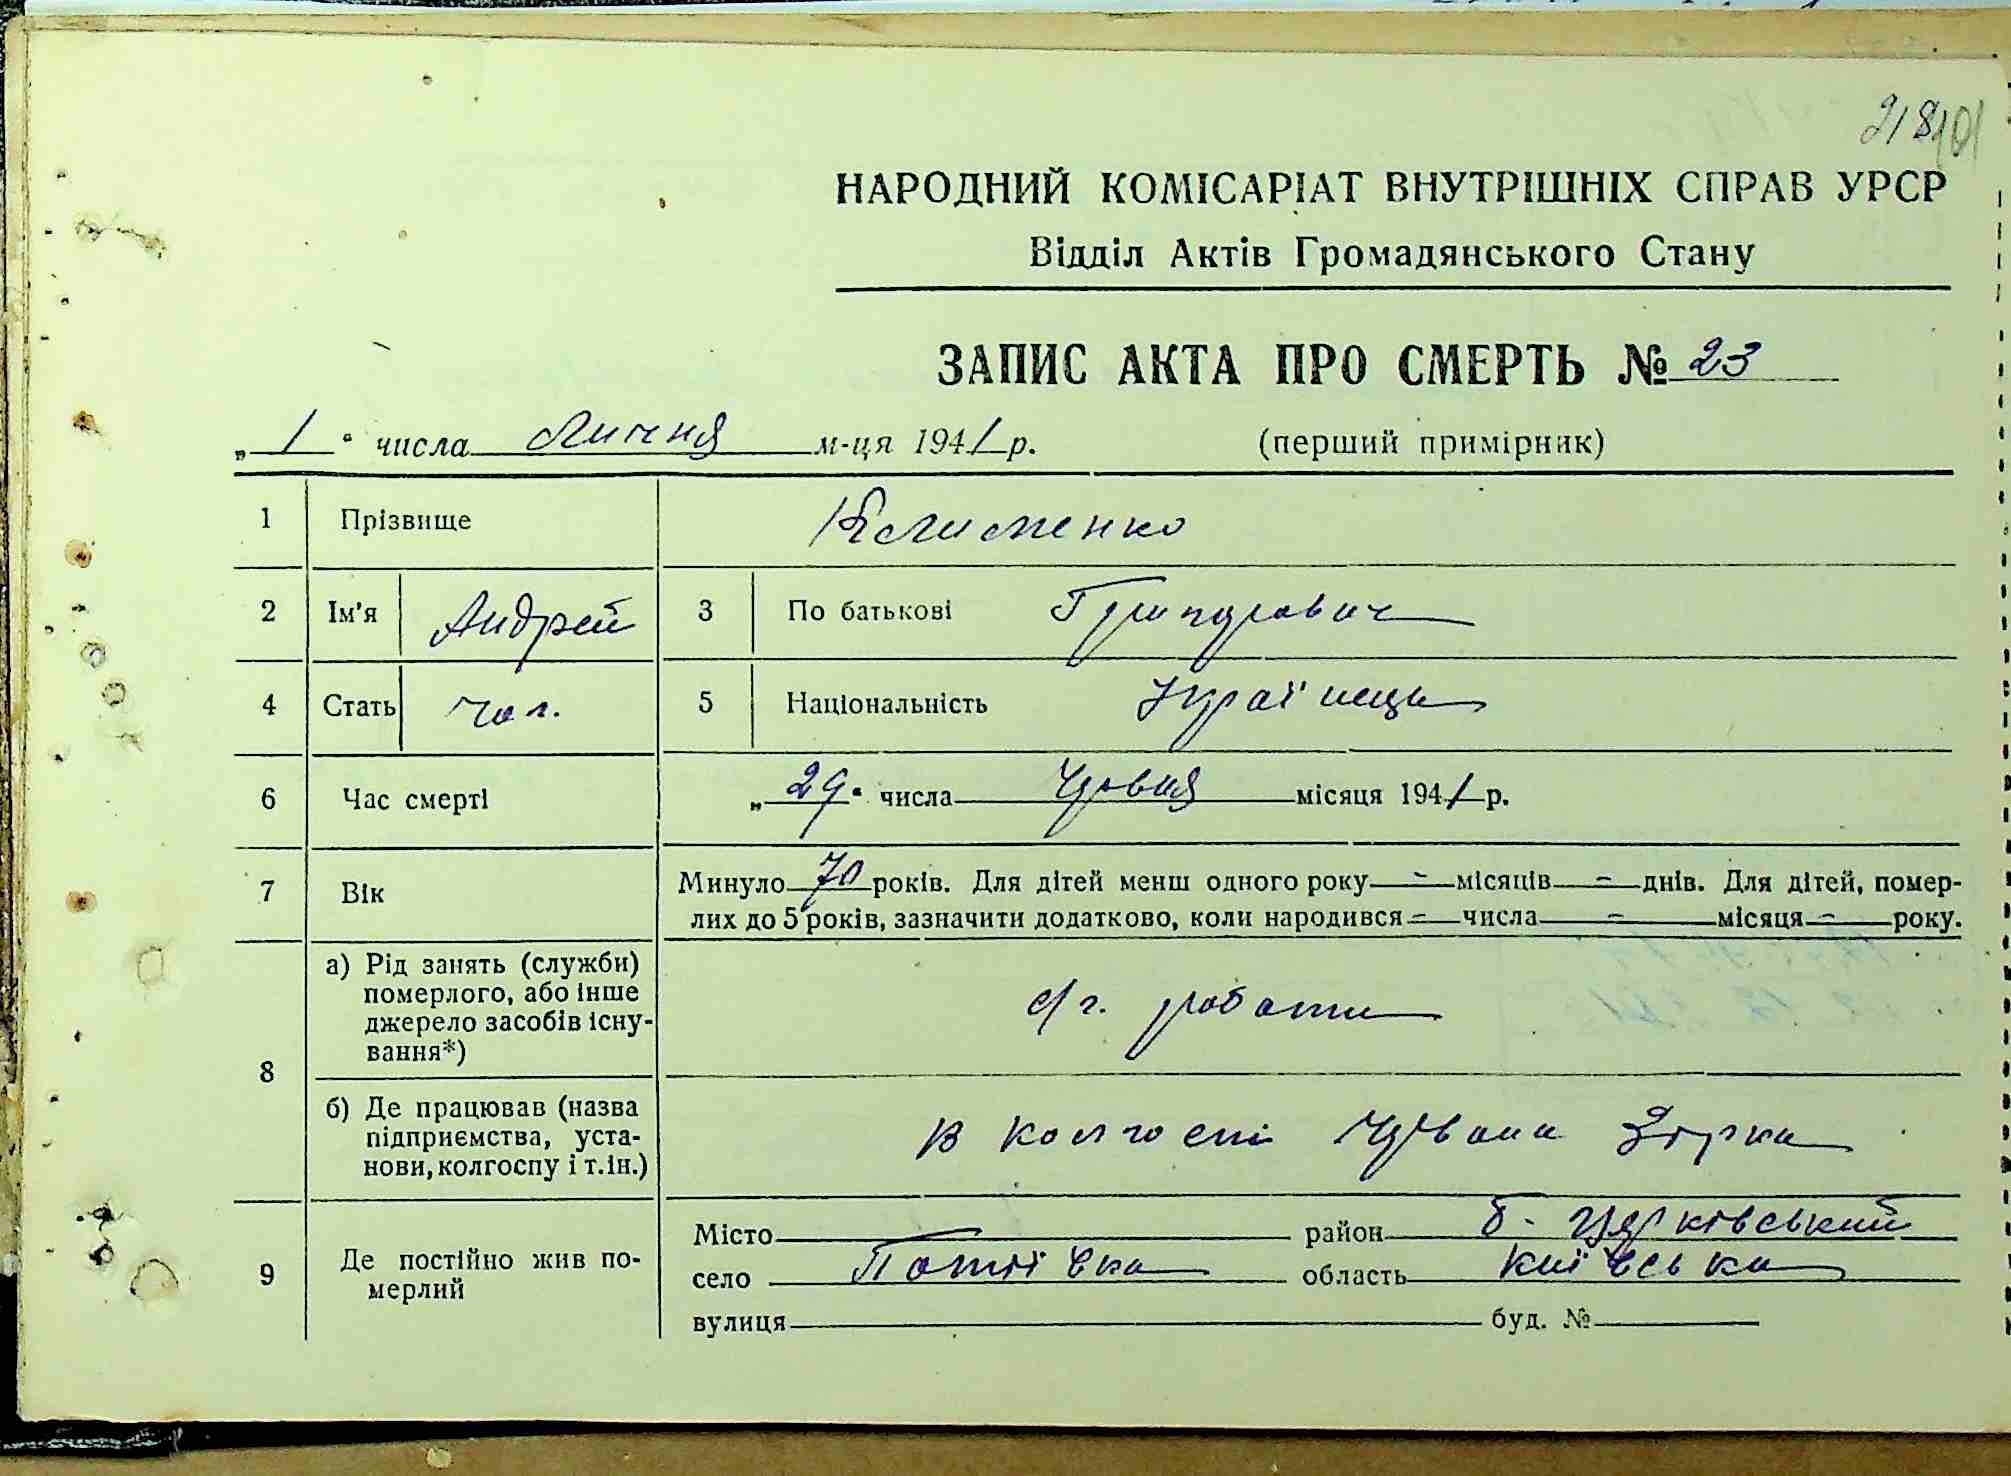 218
НАРОДНИЙ КОМІСАРІАТ ВНУТРІШНІХ СПРАВ УРСР
Відділ Актів Громадянського Стану
ЗАПИС АКТА ПРО СМЕРТЬ № 23
„ 1 " числа Липня м-ця 1941 р. (перший примірник)
1 Прізвище Клименко
2 Ім'я Андрей 3 По батькові Григорович
4 Стать чол. 5 Національність Українець
6 Час смерті „ 29 " числа Червня місяця 1941 р.
7 Вік Минуло 70 років. Для дітей менш одного року - місяців - днів. Для дітей, помер-
лих до 5 років, зазначити додатково, коли народився - числа - місяця - року.
8 а) Рід занять (служби)
померлого, або інше
джерело засобів існу-
вання*) с/г. робота
б) Де працював (назва
підприємства, уста-
нови, колгоспу і т.ін.) В колгоспі Червона Зірка
9 Де постійно жив по-
мерлий
Місто район б. Церківський
село Потіївка область Київська
вулиця буд. №